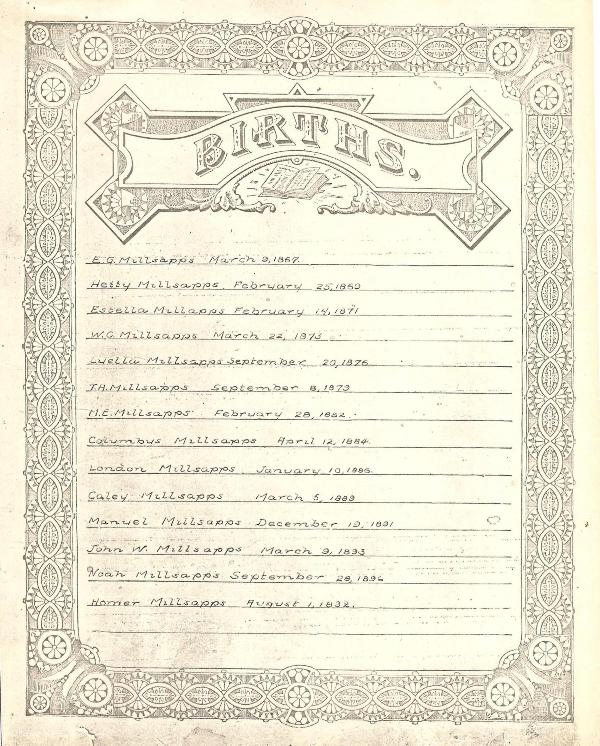 BIRTHS.
E.G. Millsapps March 9, 1867.
Hetty Millsapps February 25, 1869
Estella Millapps February 14, 1871
W.G. Millsapps March 22, 1873
Luella Millsapps September 20, 1876
T.A. Millsapps September 8, 1879
M.E. Millsapps February 28, 1882.
Columbus Millsapps April 12, 1884.
London Millsapps January 10, 1886.
Caley Millsapps March 5, 1889
Manuel Millsapps December 19, 1891
John W. Millsapps March 9, 1893
Noah Millsapps September 28, 1896
Homer Millsapps August 1, 1892.